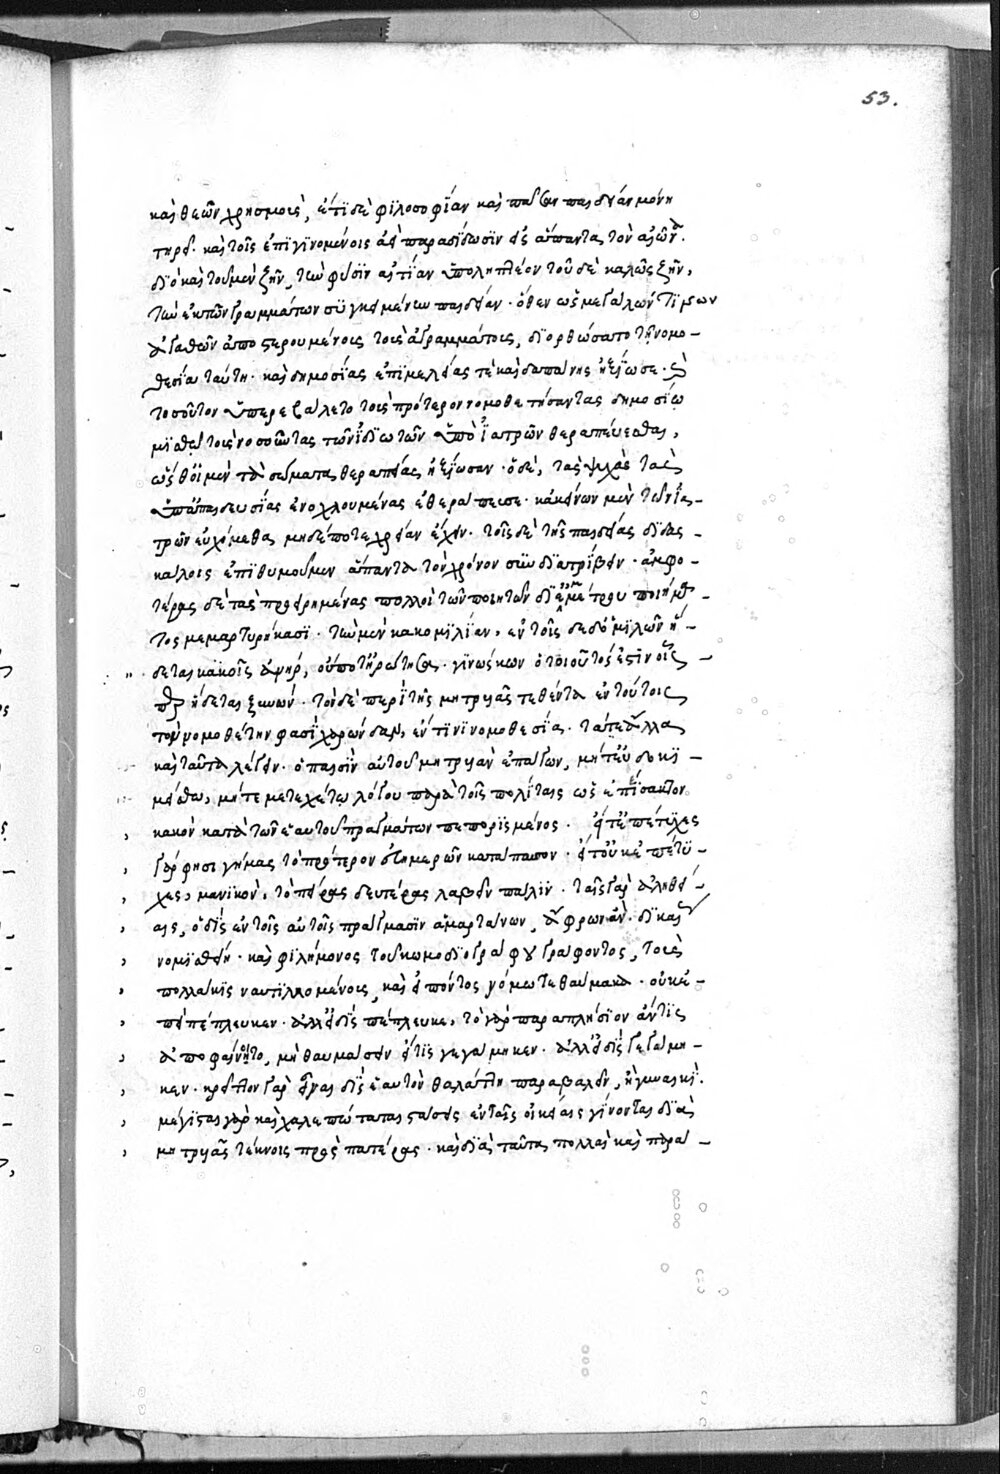 53.
καὶ θεῶν χρησμοὺς, ἔτι δὲ φιλοσοφίαν καὶ πᾶσαν παιδείαν μόνη
τηρεῖ· καὶ τοῖς ἐπιγινομένοις ἀεὶ παραδίδωσιν εἰς ἅπαντα τὸν αἰῶνα.
διὸ καὶ τοῦ μὲν ζῆν, τὴν φύσιν αἰτίαν ὑποληπτέον τοῦ δὲ καλῶς ζῆν,
τὴν ἐκ τῶν γραμμάτων συγκειμένην παιδείαν· ὅθεν ὡς μεγάλων τινων
ἀγαθῶν ἀποστερουμένους τοὺς ἀγραμμάτους, διορθώσατο τῇ νομο-
θεσίᾳ ταύτῃ· καὶ δημοσίας ἐπιμελείας τὲ καὶ δαπάνης ἠξίωσε· καὶ
τοσοῦτον ὑπερεβάλετο τοὺς πρότερον νομοθετήσαντας δημοσίῳ
μισθῷ τοὺς νοσοῦντας τῶν ἰδιωτῶν ὑπὸ ἰατρῶν θεραπεύεσθαι,
ὥσθ' οἱ μὲν τὰ σώματα θεραπείας ἠξίωσαν· ὁ δὲ, τὰς ψυχὰς τὰς
ὑπ' ἀπαιδευσίας ἐνοχλουμένας ἐθεράπευσε· κἀκείνων μὲν τῶν ἰα-
τρῶν εὐχόμεθα μηδέποτε χρείαν ἔχειν· τοῖς δὲ τῆς παιδείας διδασ-
κάλοις ἐπιθυμοῦμεν ἅπαντα τὸν χρόνον συνδιατρίβειν· ἀμφο-
τέρας δὲ τὰς προειρημένας πολλοὶ τῶν ποιητῶν δι' ἐμμέτρου ποιήμα-
τος μεμαρτυρήκασι· τὴν μὲν κακομιλίαν, ἐν τοῖσδε ὁ μιλῶν ἥ-
δεται κακοῖς ἀνὴρ, οὐ πότ' ἠρώτησα· γινώσκων ὅτι οὗτός ἐστιν οἷς
περ ἥδεται ξυνών· τὸν δὲ περὶ τῆς μητρυιᾶς τεθέντα ἐν τούτοις
τὸν νομοθέτην φασὶ χαρώνδαν, ἔν τινι νομοθεσίᾳ· τά τε ἄλλα
καὶ ταῦτα λέγειν· ὁ παισὶν αὑτοῦ μητρυιὰν ἐπάγων, μήτ' εὐδοκι-
μείσθω, μήτε μετεχέτω λόγου παρὰ τοῖς πολίταις ὡς ἐπείσακτον
κακὸν κατὰ τῶν ἑαυτοῦ πραγμάτων πεπορισμένος. εἴτ' ἐπέτυχες
γάρ φησι γήμας τὸ πρότερον εὐημερῶν κατάπαυσον· εἴτ' οὐκ ἐπέτυ-
χες, μανικὸν, τὸ πείρας δευτέρας λαβεῖν πάλιν· ταῖς γὰρ ἀληθεί-
αις, ὁ δὶς ἐν τοῖς αὐτοῖς πράγμασιν ἁμαρτάνων, ἄφρων ἂν δικαίως
νομισθείη· καὶ φιλήμονος τοῦ κωμοδιογράφου γράφοντος, τοὺς
πολλάκις ναυτιλλομένους, καὶ εἰπόντος νόμῳ τεθαύμακα· οὐκ εἰ
τις πέπλευκεν· ἀλλ' εἰ δὶς πέπλευκε, τὸ γὰρ παραπλήσιον ἄν τις
ἀποφαίνοιτο, μὴ θαυμάσειν εἴ τις γεγάμηκεν· ἀλλ' εἰ δὶς γεγάμη-
κεν· κρεῖττον γὰρ εἶναι δὶς ἑαυτὸν θαλάττῃ παραβαλεῖν, ἢ γυναικί.
μέγισται γὰρ καὶ χαλεπώταται στάσεις ἐν ταῖς οἰκείαις γίνονται διὰ
μητρυιὰς τέκνοις πρὸς πατέρας· καὶ διὰ ταῦτα πολλαὶ καὶ παρα-